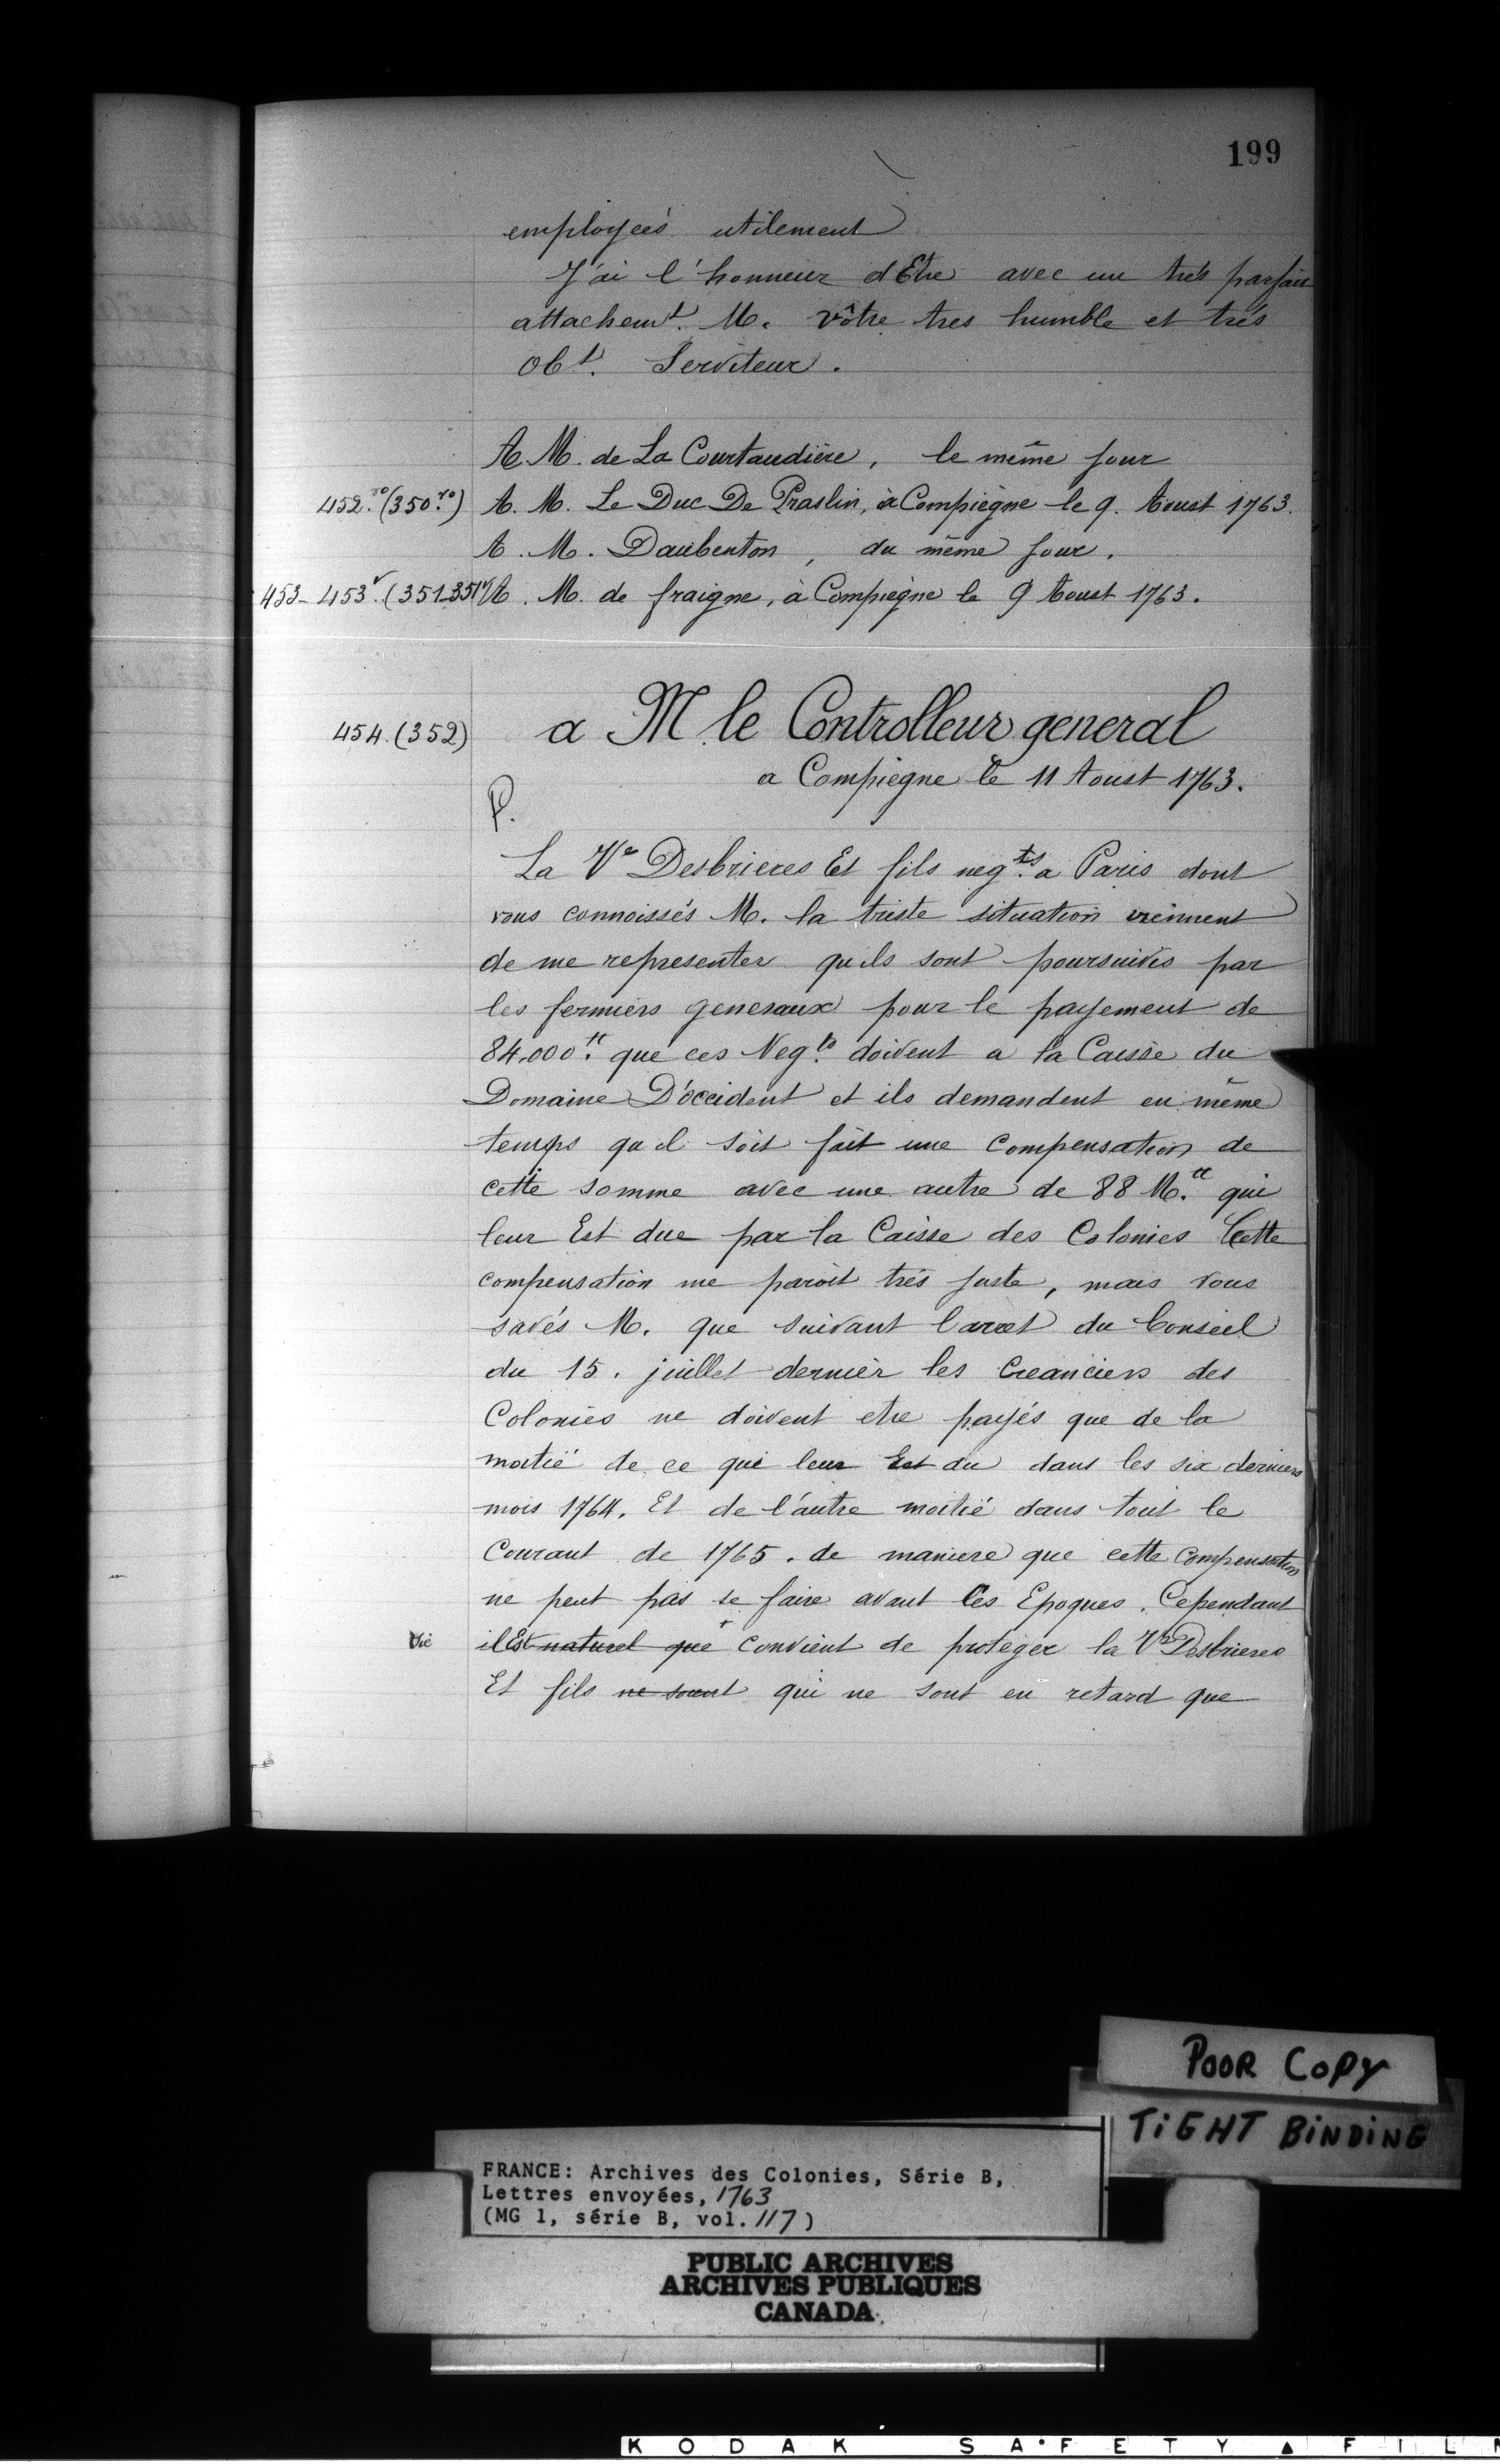 199
employeés utilement
J'ai l'honneur dEtre avec un trés parfait
attachemt. M. vôtre tres humble et trés
Obt. Serviteur.
A M. de La Courtaudière, le même jour
452.ro (350.ro) A. M. Le Duc De Praslin, à Compiègne le 9. Aoust 1763.
A. M. Daubenton, du même jour.
453-453v. (351.351v) A. M. de fraigne, à Compiegne le 9 Aoust 1763.
454. (352) a M. le Controlleur general
a Compiegne le 11 Aoust 1763.
P.
La Ve Desbrieres Et fils negts. a Paris dont
vous connoissés M. la triste situation viennent
de me representer qu'ils sont poursuivis par
les fermiers generaux pour le payement de
84.000tt. que ces Negts. doivent a la Caisse du
Domaine D'occident et ils demandent en même
temps qu'il soit fait une Compensation de
cette somme avec une autre de 88 M.tt qui
leur Est due par la Caisse des Colonies Cette
compensation me paroit trés juste, mais vous
savés M. que suivant l'arret du Conseil
du 15. juillet dernier les Creanciers des
Colonies ne doivent etre payés que de la
moitié de ce qui leur Est du dans les six derniers
mois 1764. Et de l'autre moitié dans tout le
Courant de 1765. de maniere que cette Compensation
ne peut pas se faire avant ces Epoques. Cependant
il Est naturel que convient de proteger la Ve Desbrieres
Et fils ne sount qui ne sont en retard que
POOR COPY
TIGHT BINDING
FRANCE: Archives des Colonies, Série B,
Lettres envoyées, 1763
(MG 1, série B, vol. 117)
PUBLIC ARCHIVES
ARCHIVES PUBLIQUES
CANADA
KODAK SAFETY FILM